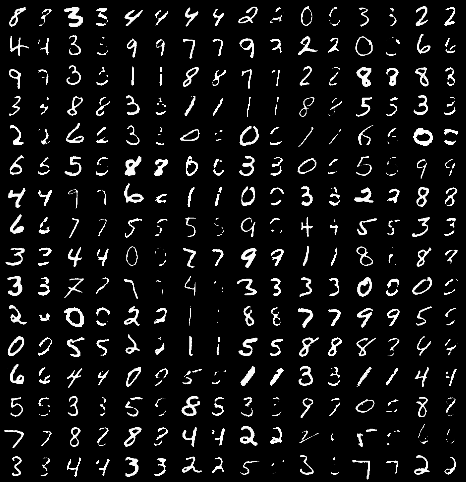 8 8 3 3 4 4 4 4 2 2 0 0 3 3 2 2
4 4 3 3 9 9 7 7 9 2 2 0 6 6
9 9 3 3 1 1 8 8 7 7 2 2 8 8 8 8
3 8 8 3 1 1 1 1 8 8 5 5 3 3
2 2 6 6 3 0 0 1 1 6 0 0
6 6 5 5 8 8 0 0 3 3 0 5 9 9
4 4 9 6 1 1 0 0 3 3 2 2 8 8
6 6 7 7 5 5 5 5 9 4 4 5 5 3 3
3 3 4 4 0 7 7 9 9 1 1 8 8
3 3 7 7 7 4 3 3 3 3 0 0 0
2 0 0 2 2 1 8 8 7 7 9 9 5
0 0 5 5 2 2 1 1 5 5 8 8 8 4 4
6 6 4 4 0 0 5 1 1 3 3 1 1 4 4
5 5 3 3 5 8 5 3 9 9 0 8 8
7 7 8 8 8 8 4 4 2 2 5 6
3 3 4 4 3 3 2 2 5 3 7 7 2 2